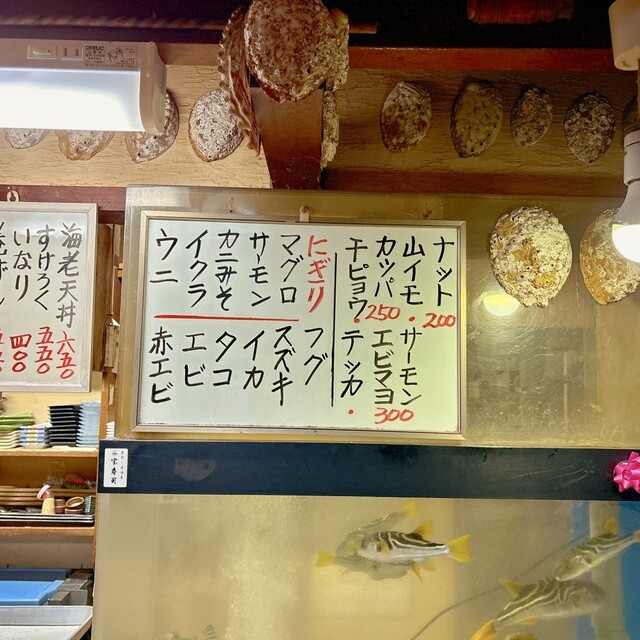 ナット
200
山イモ・
カッパ
250
干ピョウ・
サーモン
エビマヨ
300
テッカ・
にぎり
マグロ
サーモン
カニみそ
イクラ
ウニ
フグ
スズキ
イカ
タコ
エビ
赤エビ
海老天丼 六五〇
すけろく 五五〇
いなり 四〇〇
宝寿司